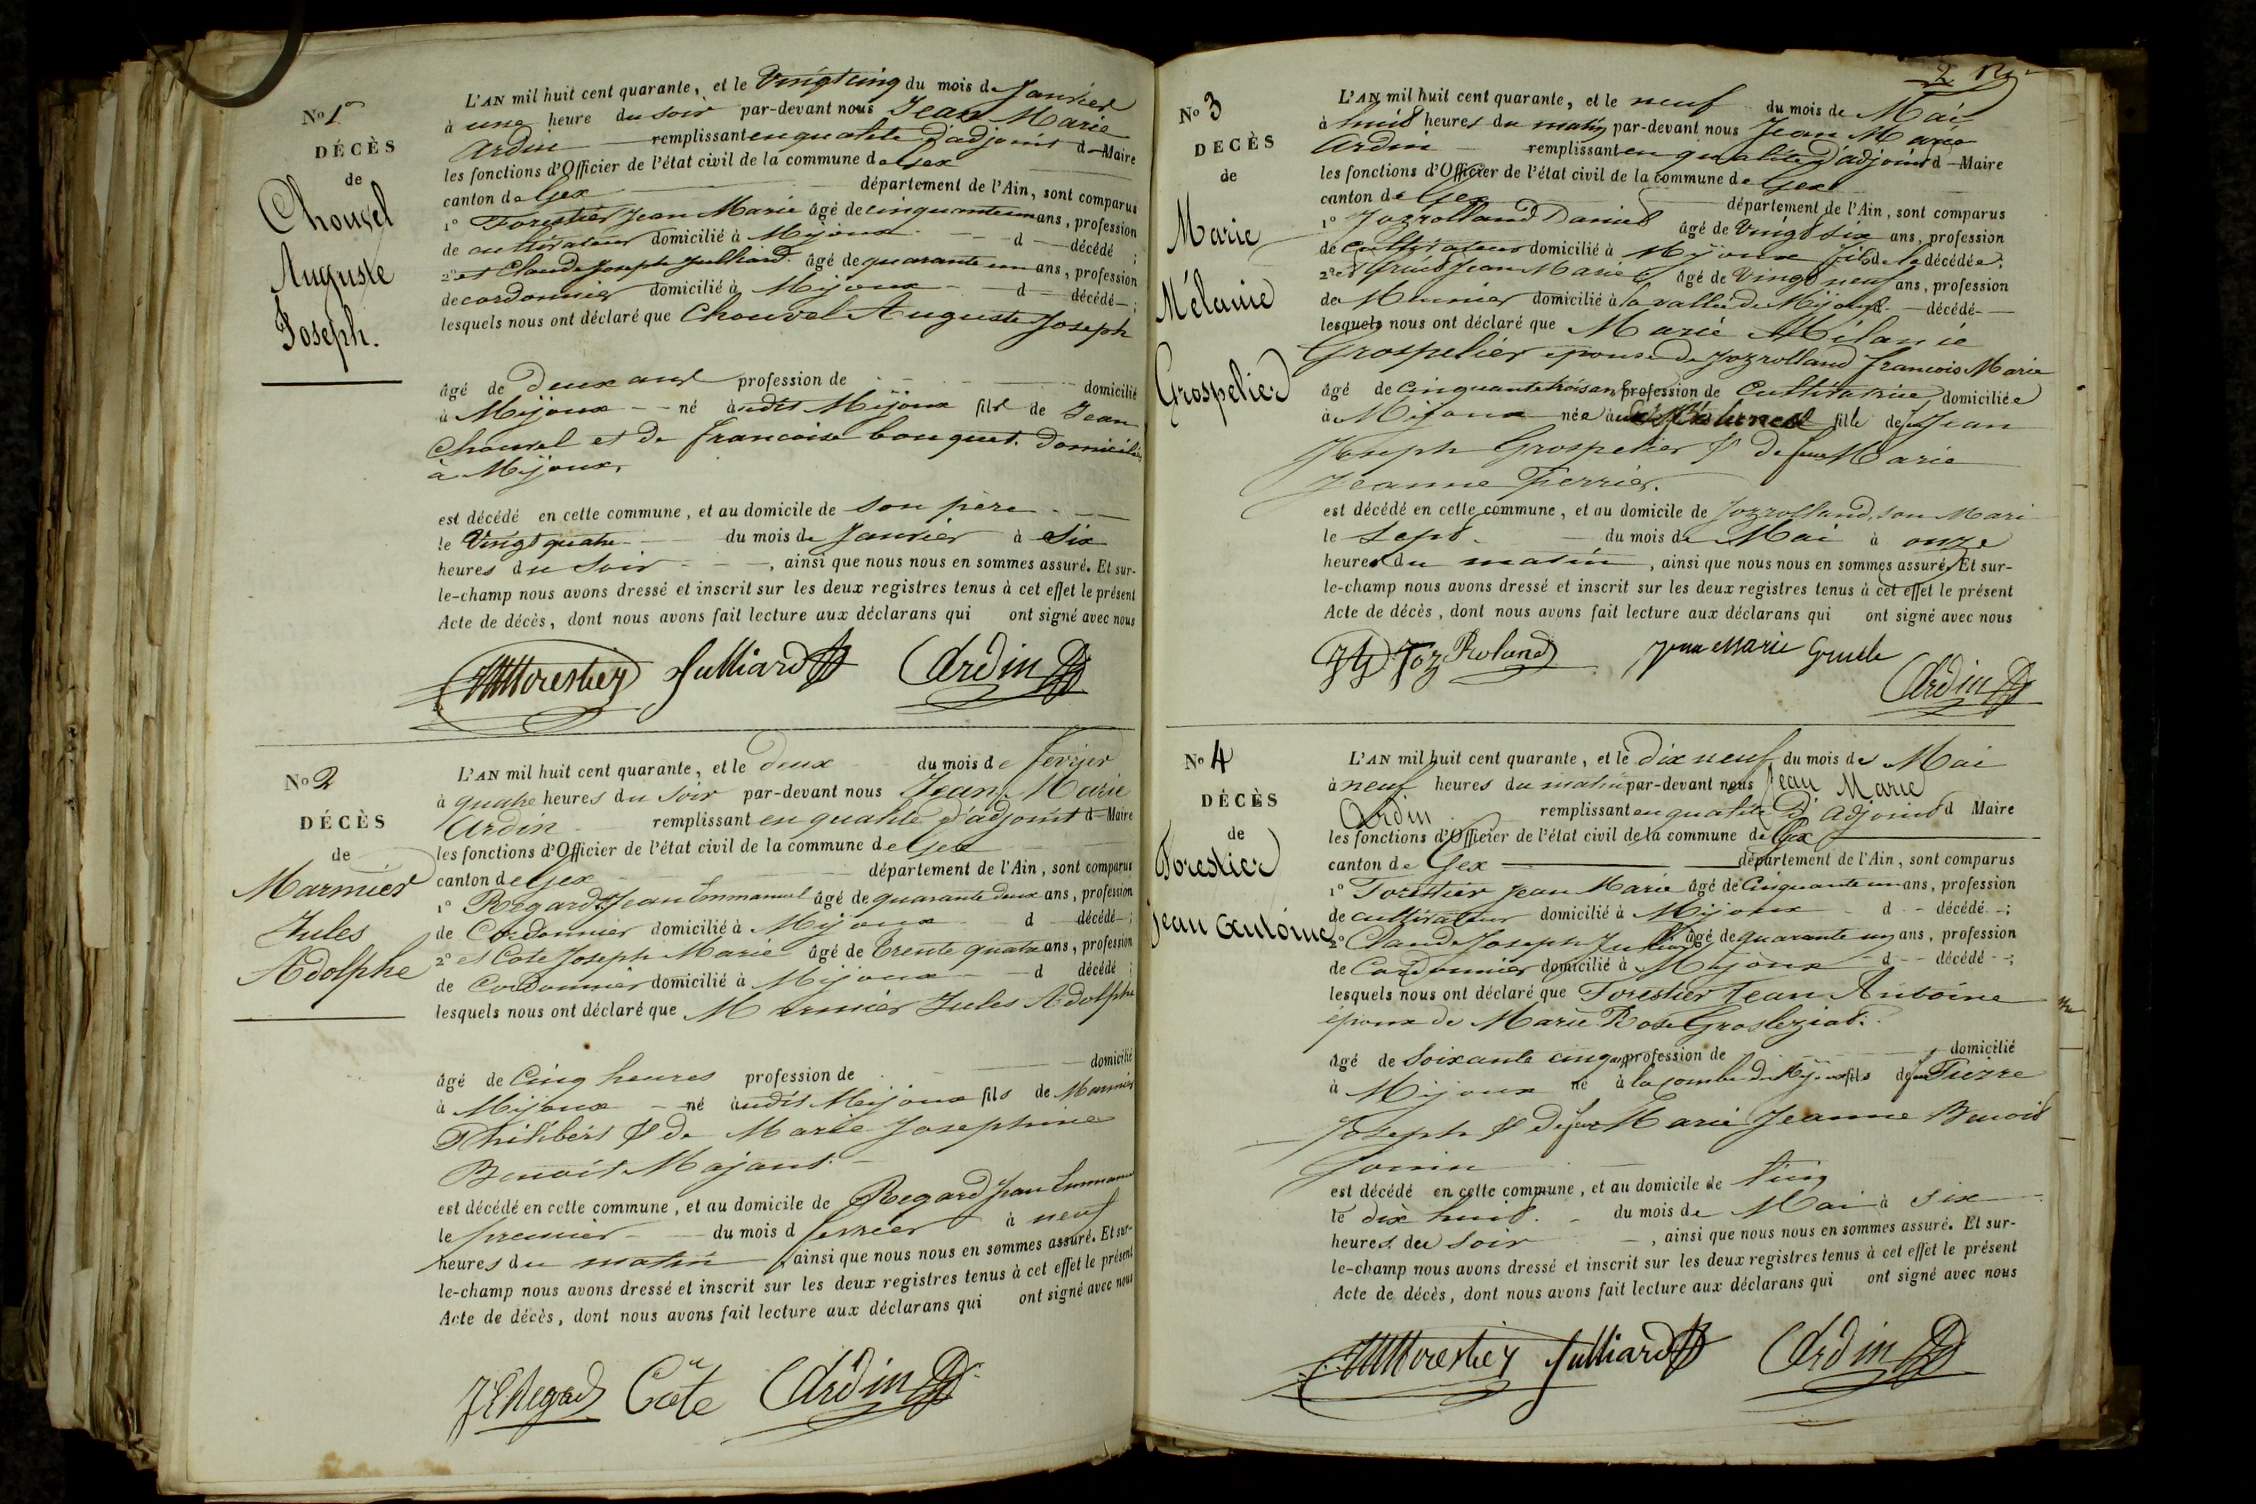 No 1er
DÉCÈS
de
Chouvel
Auguste
Joseph.
L'AN mil huit cent quarante, et le Vingt cinq du mois de Janvier
à une heure du soir par-devant nous Jean Marie
Ardin remplissant en qualité d'adjoint d Maire
les fonctions d'Officier de l'état civil de la commune de Gex
canton de Gex département de l'Ain, sont comparus
1° Forestier Jean Marie âgé de cinquante un ans, profession
de cultivateur domicilié à Mijoux d décédé ;
2° et Claude Joseph Julliard âgé de quarante un ans, profession
de cordonnier domicilié à Mijoux d décédé ;
lesquels nous ont déclaré que Chouvel Auguste Joseph
âgé de deux ans profession de domicilié
à Mijoux né audit Mijoux fils de Jean
Chouvel et de francoise bouquet. domiciliés
à Mijoux,
est décédé en cette commune, et au domicile de son père
le Vingt quatre du mois de Janvier à Six
heures du soir , ainsi que nous nous en sommes assuré. Et sur-
le-champ nous avons dressé et inscrit sur les deux registres tenus à cet effet le présent
Acte de décès, dont nous avons fait lecture aux déclarans qui ont signé avec nous
Forestier Julliard Ardin
No 2
DÉCÈS
de
Marmier
Jules
Adolphe
L'AN mil huit cent quarante, et le deux du mois de fevrier
à quatre heures du soir par-devant nous Jean Marie
Ardin remplissant en qualité d'adjoint d Maire
les fonctions d'Officier de l'état civil de la commune de Gex
canton de Gex département de l'Ain, sont comparus
1° Regard Jean Emmanuel âgé de quarante deux ans, profession
de Cordonnier domicilié à Mijoux d décédé ;
2° et Cote Joseph Marie âgé de trente quatre ans, profession
de Cordonnier domicilié à Mijoux d décédé ;
lesquels nous ont déclaré que Marmier Jules Adolphe
âgé de Cinq heures profession de domicilié
à Mijoux né audit Mijoux fils de Marmier
Philibert & de Marie Josephine
Benoit Majant.
est décédé en cette commune, et au domicile de Regard Jean Emmanuel
le premier du mois d fevrier à neuf
heures du matin , ainsi que nous nous en sommes assuré. Et sur-
le-champ nous avons dressé et inscrit sur les deux registres tenus à cet effet le présent
Acte de décès, dont nous avons fait lecture aux déclarans qui ont signé avec nous
J E Regard Cote Ardin
2
No 3
DÉCÈS
de
Marie
Mélanie
Grospelier
L'AN mil huit cent quarante, et le neuf du mois de Mai
à huit heures du matin par-devant nous Jean Marie
Ardin remplissant en qualité d'adjoint d Maire
les fonctions d'Officier de l'état civil de la commune de Gex
canton de Gex département de l'Ain, sont comparus
1° Jozrolland Daniel âgé de Vingt six ans, profession
de cultivateur domicilié à Mijoux fils de la décédée ;
2° et Gruet Jean Marie âgé de Vingt neuf ans, profession
de Meunier domicilié à la vallée de Mijoux d décédé
lesquels nous ont déclaré que Marie Mélanie
Grospelier epouse de Jozrolland francois Marie
âgé de cinquante trois ans profession de Cultivatrice domiciliée
à Mijoux née fille de feu Jean
Joseph Grospelier & de feue Marie
Jeanne Ferrier.
est décédé en cette commune, et au domicile de Jozrolland, son Mari
le Sept du mois de Mai à onze
heures du matin , ainsi que nous nous en sommes assuré. Et sur-
le-champ nous avons dressé et inscrit sur les deux registres tenus à cet effet le présent
Acte de décès, dont nous avons fait lecture aux déclarans qui ont signé avec nous
Joz Roland Jean Marie Gruet Ardin
No 4
DÉCÈS
de
Forestier
Jean Antoine
L'AN mil huit cent quarante, et le dix neuf du mois des Mai
à neuf heures du matin par-devant nous Jean Marie
Ardin remplissant en qualité d'adjoint d Maire
les fonctions d'Officier de l'état civil de la commune de Gex
canton de Gex département de l'Ain, sont comparus
1° Forestier Jean Marie âgé de Cinquante un ans, profession
de cultivateur domicilié à Mijoux d décédé ;
2° Claude Joseph Julliard âgé de quarante un ans, profession
de Cordonnier domicilié à Mijoux d décédé ;
lesquels nous ont déclaré que Forestier Jean Antoine
époux de Marie Rose Grosleziat.
âgé de Soixante cinq ans profession de domicilié
à Mijoux né à la combe de Mijoux fils de feu Pierre
Joseph & de feue Marie Jeanne Benoit
Jonin
est décédé en cette commune, et au domicile de
le dix huit du mois de Mai à six
heures du soir , ainsi que nous nous en sommes assuré. Et sur-
le-champ nous avons dressé et inscrit sur les deux registres tenus à cet effet le présent
Acte de décès, dont nous avons fait lecture aux déclarans qui ont signé avec nous
Forestier Julliard Ardin